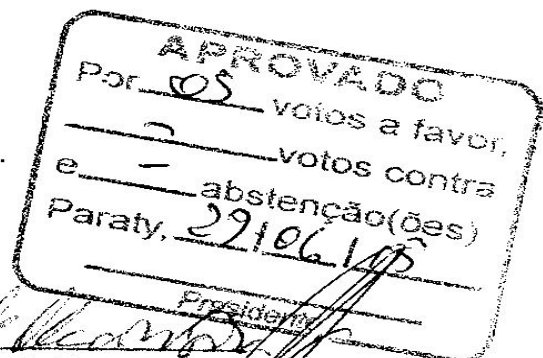 APROVADO
Por 05 votos a favor,
- votos contra
e - abstenção(ões)
Paraty, 29/06/
Presidente